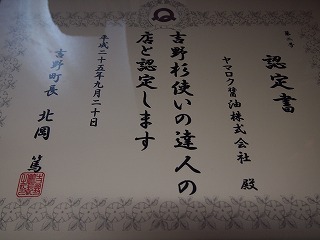 認定書
ヤマロク醤油株式会社 殿
吉野杉使いの達人の
店と認定します
平成二十五年九月二十日
吉野町長 北岡 篤